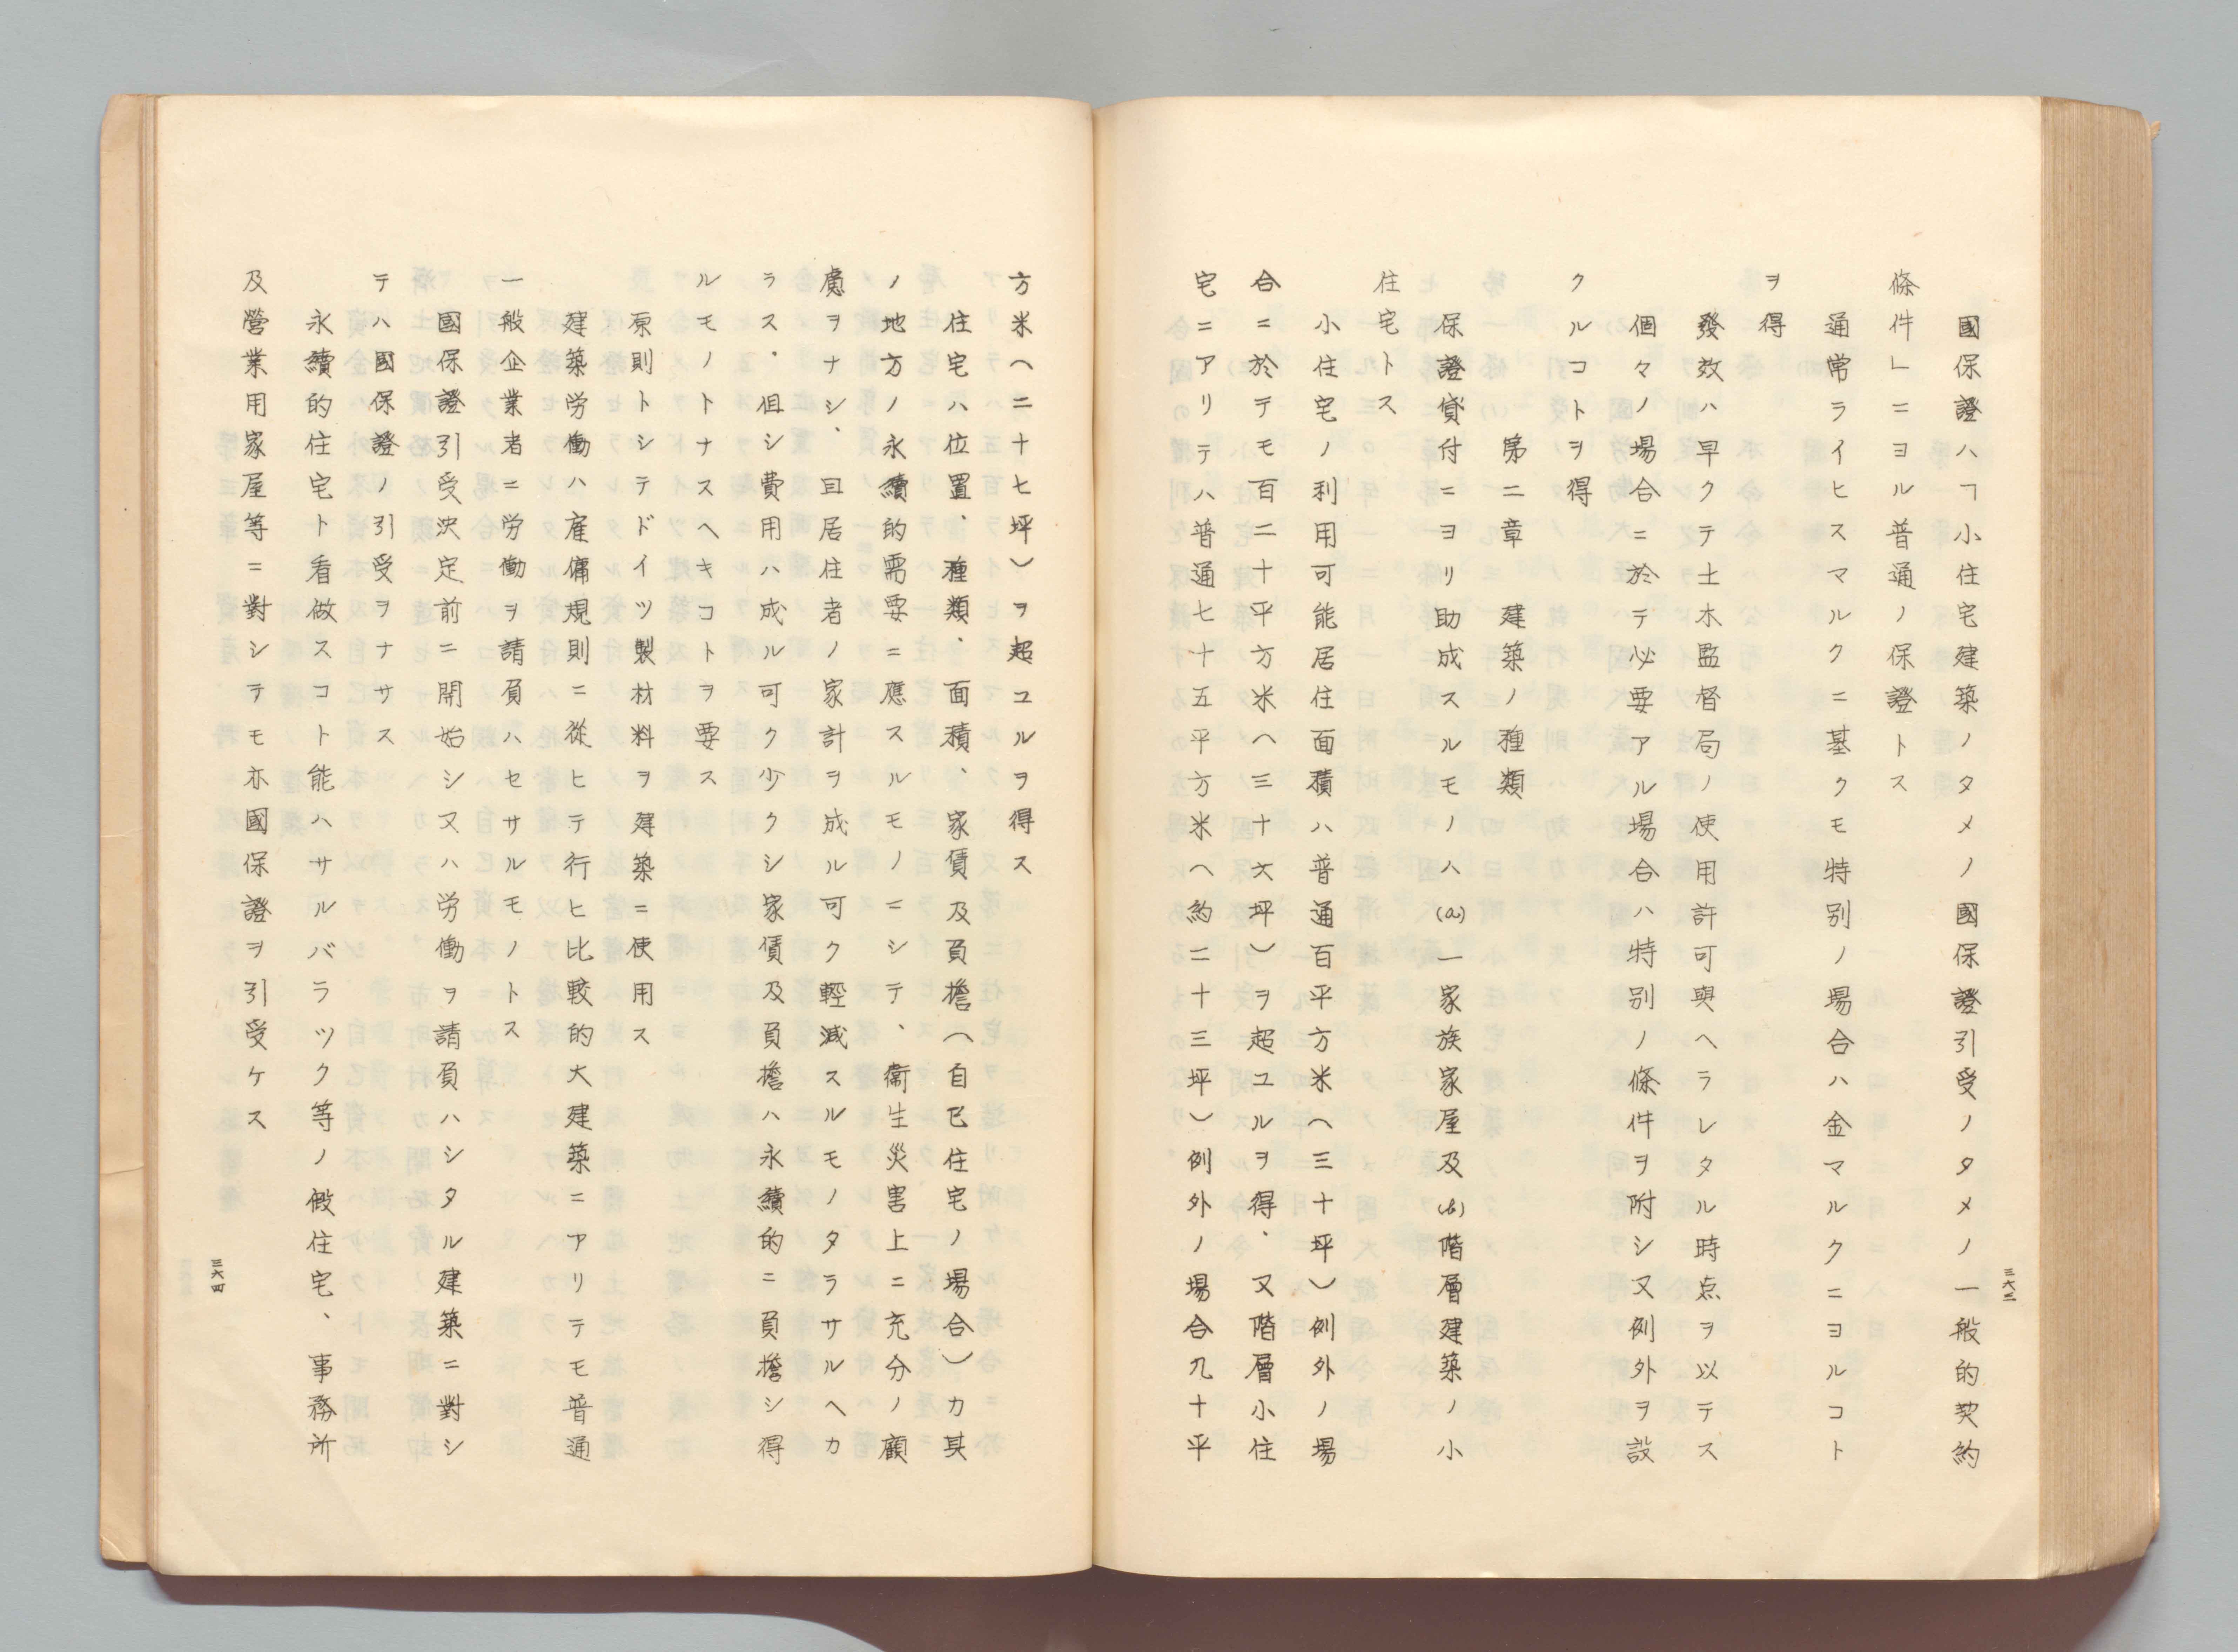 國保證ハ「小住宅建築ノタメノ國保證引受ノタメノ一般的契約
條件」ニヨル普通ノ保證トス
通常ライヒスマルクニ基クモ特別ノ場合ハ金マルクニヨルコト
ヲ得
發效ハ早クテ土木監督局ノ使用許可與ヘラレタル時点ヲ以テス
個々ノ場合ニ於テ必要アル場合ハ特別ノ條件ヲ附シ又例外ヲ設
クルコトヲ得
第二章 建築ノ種類
保證貸付ニヨリ助成スルモノハ(a)一家族家屋及(b)階層建築ノ小
住宅トス
小住宅ノ利用可能居住面積ハ普通百平方米(三十坪)例外ノ場
合ニ於テモ百二十平方米(三十六坪)ヲ超ユルヲ得、又階層小住
宅ニアリテハ普通七十五平方米(約二十三坪)例外ノ場合九十平
三六三
方米(二十七坪)ヲ超ユルヲ得ス
住宅ハ位置、種類、面積、家賃及負擔(自己住宅ノ場合)カ其
ノ地方ノ永續的需要ニ應スルモノニシテ、衞生災害上ニ充分ノ顧
慮ヲナシ、且居住者ノ家計ヲ成ル可ク輕減スルモノタラサルヘカ
ラス、但シ費用ハ成ル可ク少クシ家賃及負擔ハ永續的ニ負擔シ得
ルモノトナスヘキコトヲ要ス
原則トシテドイツ製材料ヲ建築ニ使用ス
建築労働ハ雇傭規則ニ從ヒテ行ヒ比較的大建築ニアリテモ普通
一般企業者ニ労働ヲ請負ハセサルモノトス
國保證引受決定前ニ開始シ又ハ労働ヲ請負ハシタル建築ニ對シ
テハ國保證ノ引受ヲナサス
永續的住宅ト看做スコト能ハサルバラツク等ノ假住宅、事務所
及營業用家屋等ニ對シテモ亦國保證ヲ引受ケス
三六四